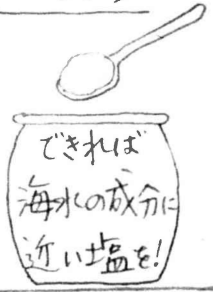 できれば
海水の成分に
近い塩を!